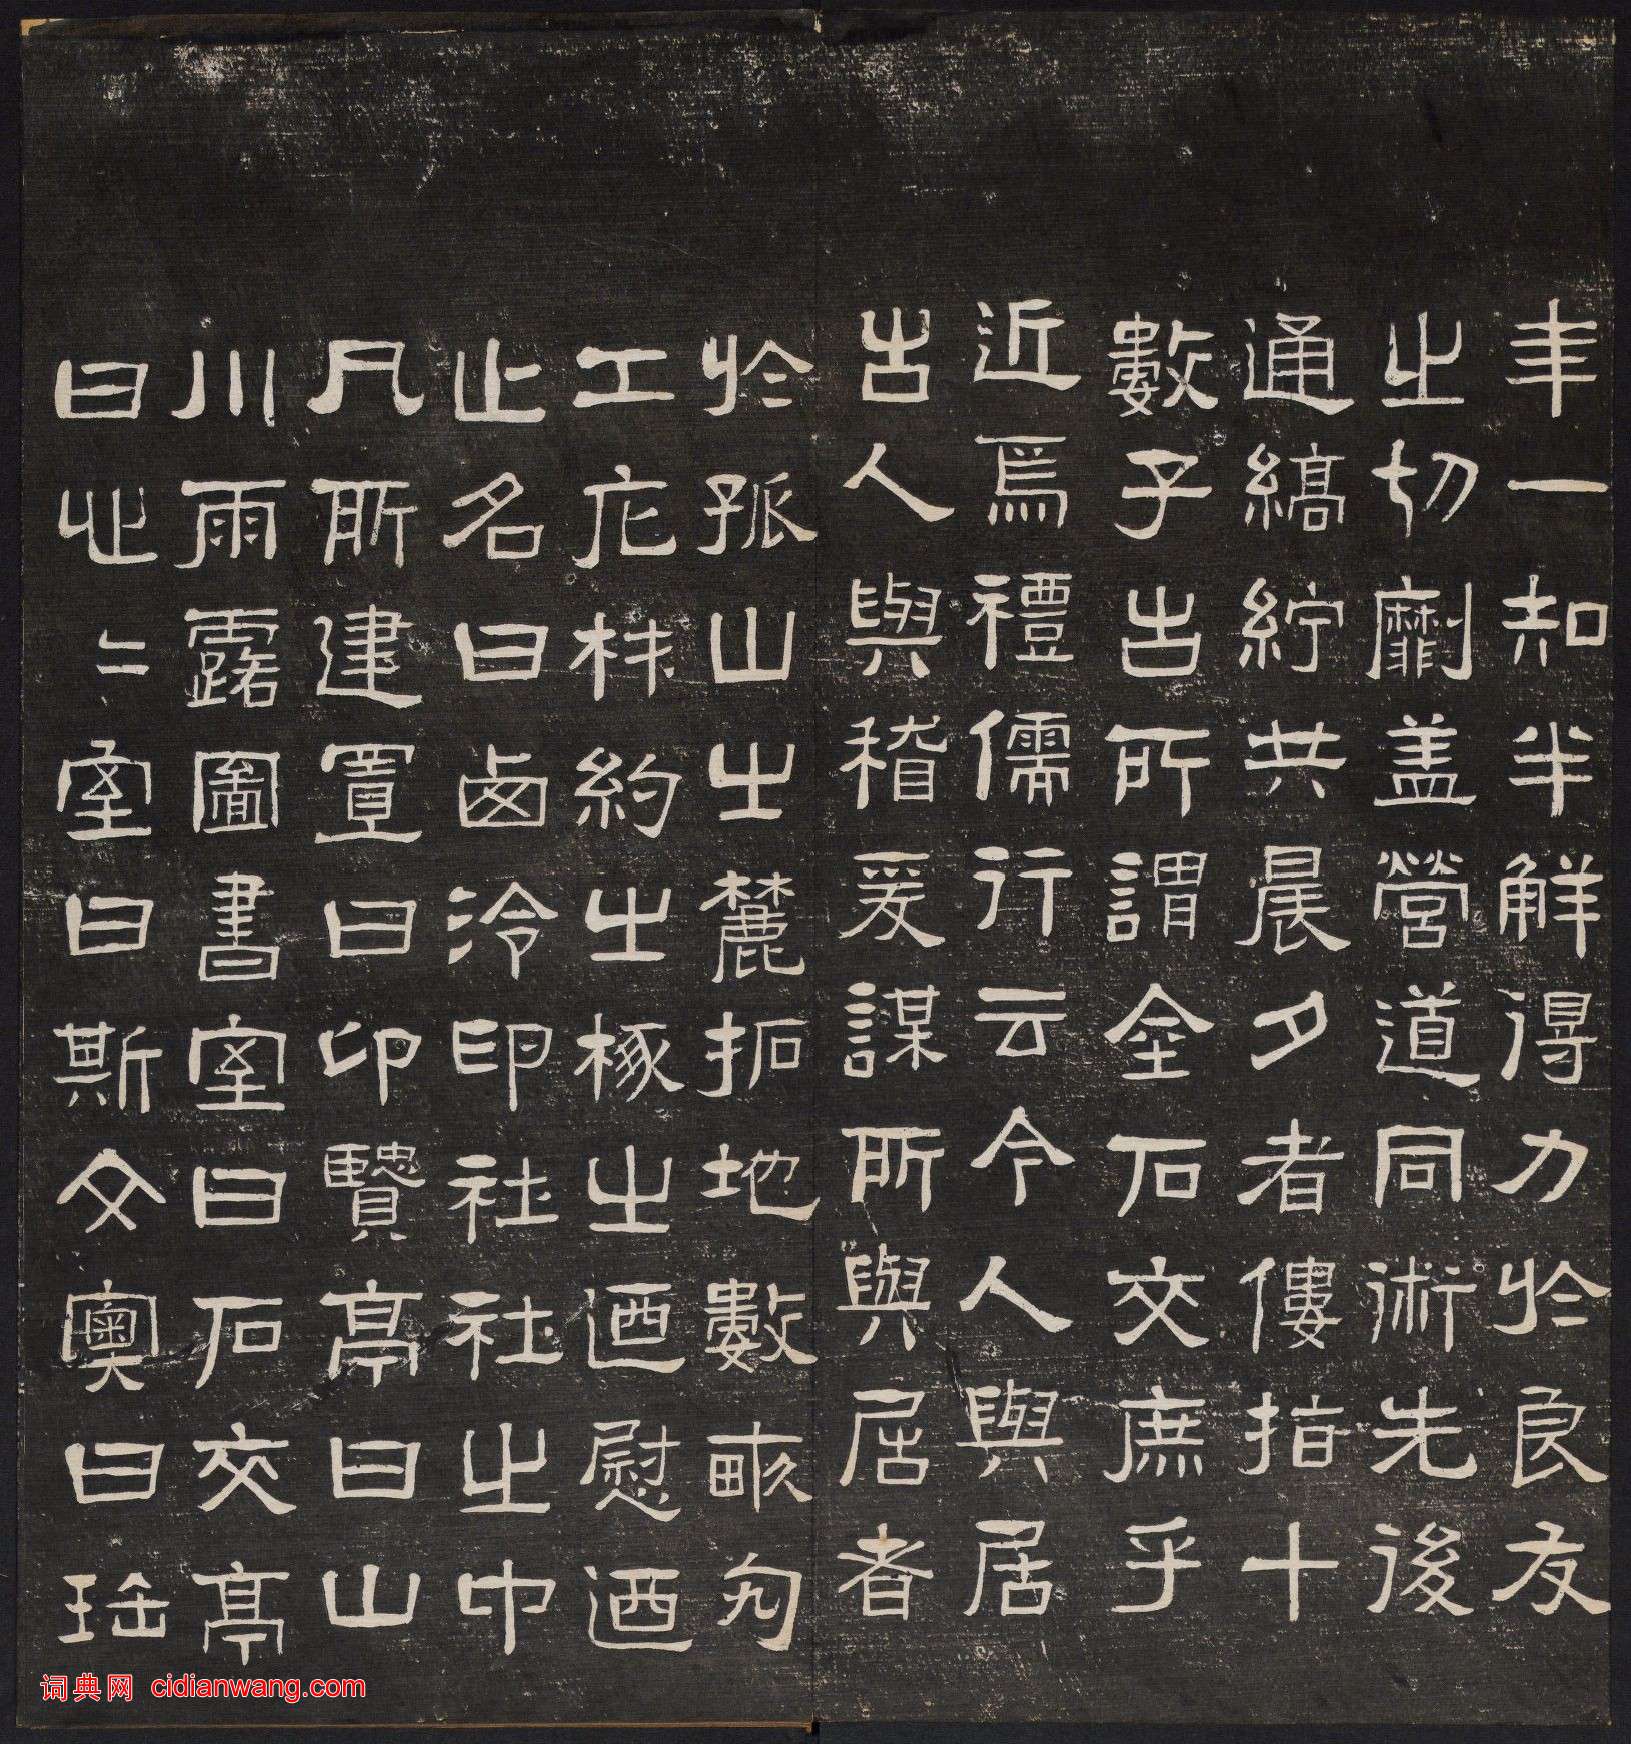 年一知半解得力於良友
之切劘盖營道同術先後
通縞紵共晨夕者僂指十
數子古所謂金石交庶乎
近焉禮儒行云今人與居
古人與稽爰謀所與居者
於孤山之麓拓地數畝匄
工庀材約之椓之迺慰迺
止名曰西泠印社社之中
凡所建置曰仰賢亭曰山
川雨露圖書室曰石交亭
曰心心室曰斯文奥曰瑶
词典网 cidianwang.com